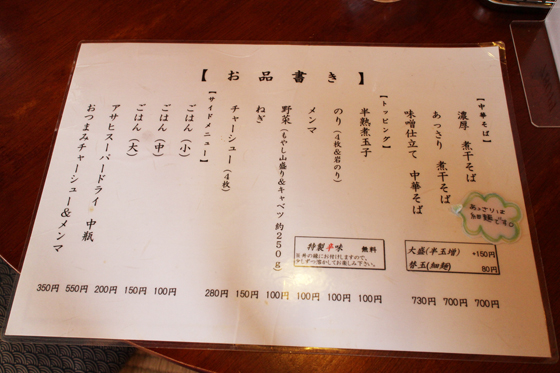 【お品書き】
【中華そば】
濃厚 煮干そば 700円
あっさり 煮干そば 700円
味噌仕立て 中華そば 730円
あっさりは
細麺です。
大盛(半玉増) +150円
替玉(細麺) 80円
【トッピング】
半熟煮玉子 100円
のり(4枚&岩のり) 100円
メンマ 100円
野菜(もやし山盛り&キャベツ 約250g) 100円
ねぎ 150円
チャーシュー(4枚) 280円
特製辛味 無料
お好みでお楽しみ下さい。
【サイドメニュー】
ごはん(小) 100円
ごはん(中) 150円
ごはん(大) 200円
アサヒスーパードライ 中瓶 550円
おつまみチャーシュー&メンマ 350円